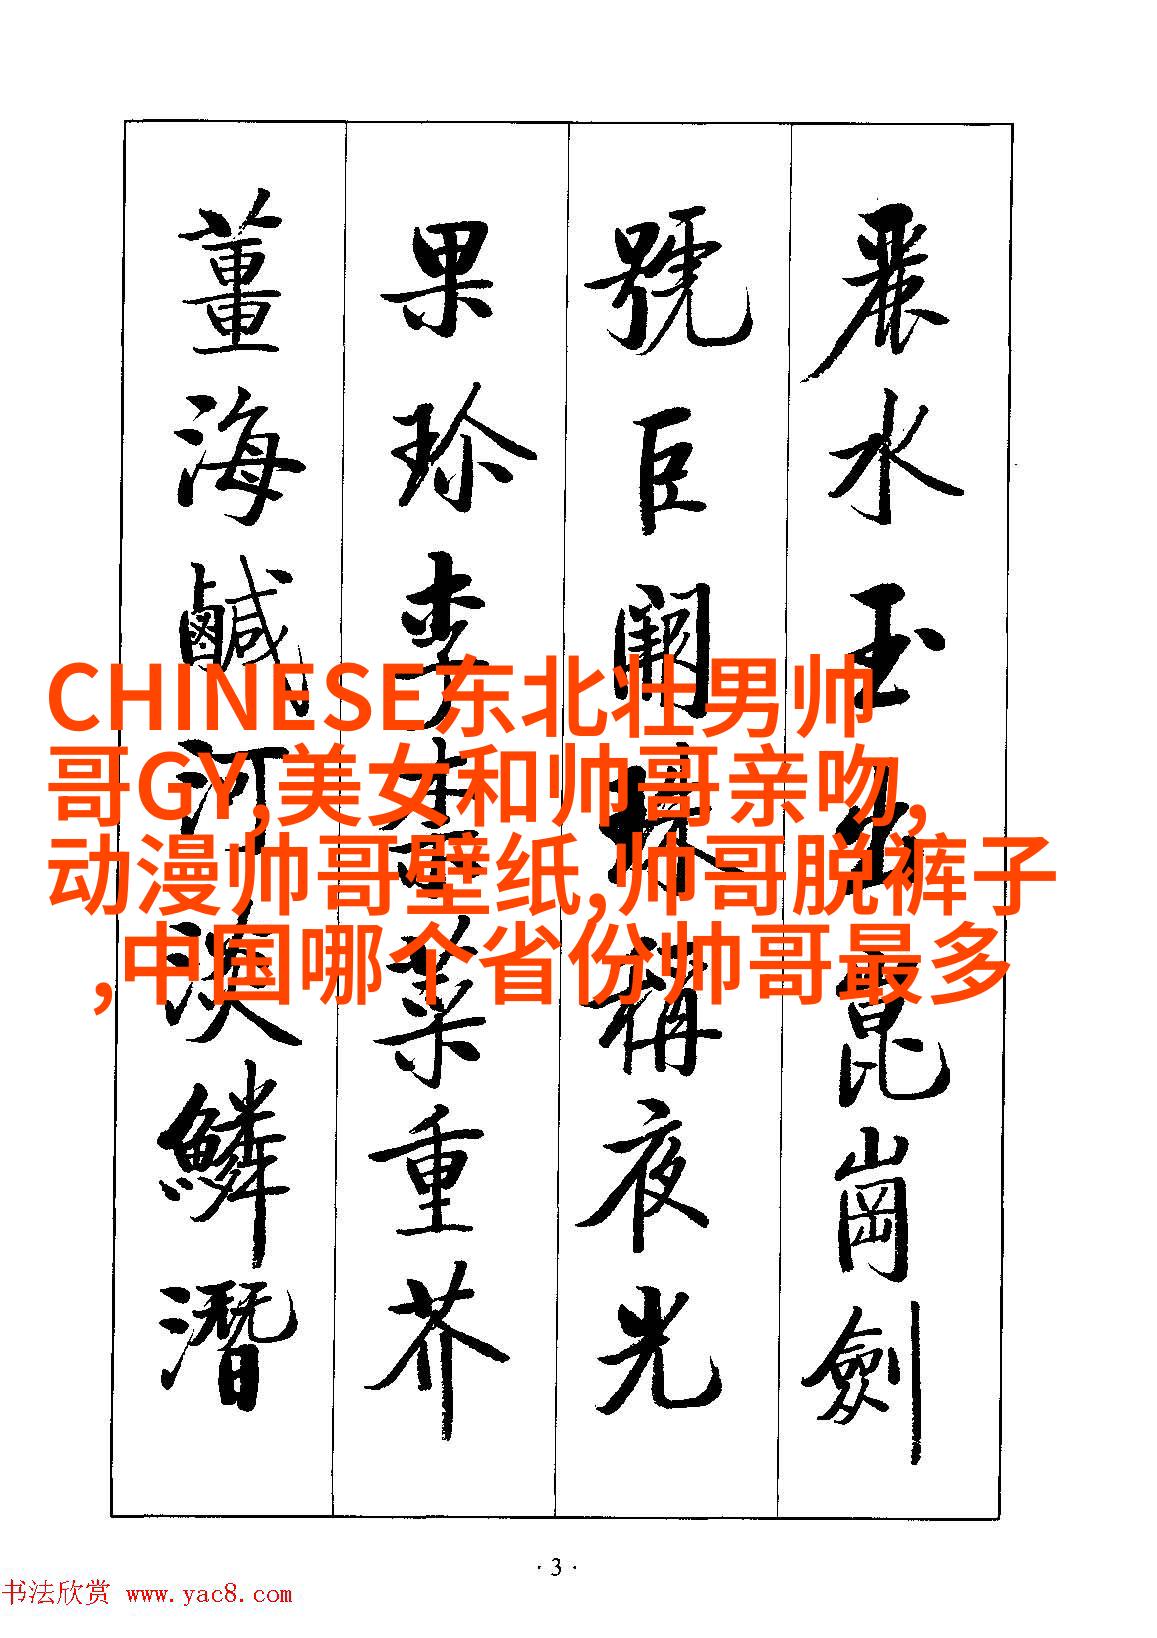 麗水玉出崑崗劍
號巨闕珠稱夜光
果珍李柰菜重芥
薑海鹹河淡鱗潛
CHINESE东北壮男帅
哥GY,美女和帅哥亲吻,
动漫帅哥壁纸,帅哥脱裤子
,中国哪个省份帅哥最多
·3·
书法欣赏 www.yac8.com